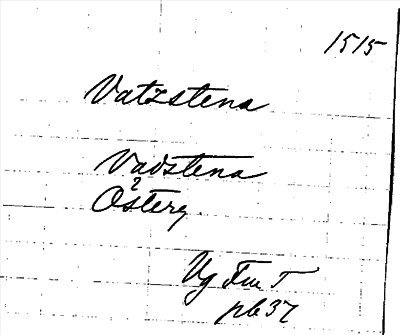 1515
Vatzstena
Vadstena
?
Österg.
Vg Fm T
pb 37